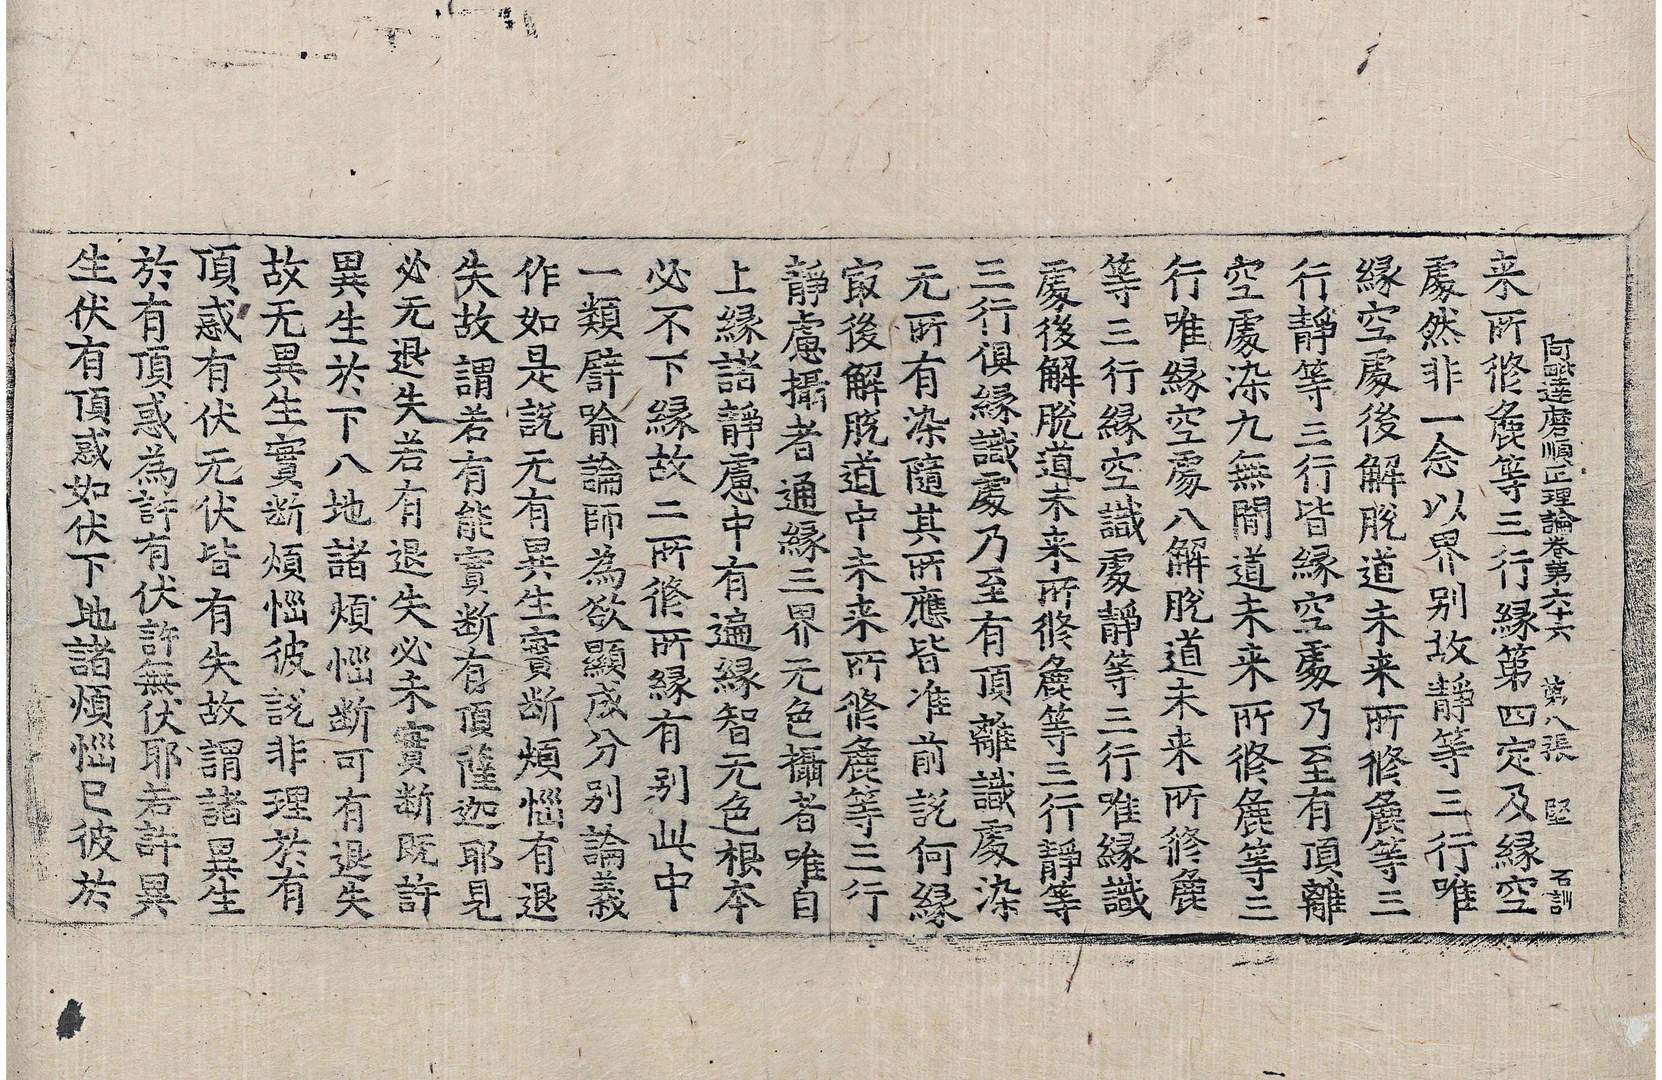 阿毗達磨順正理論卷第六十六 第八張 堅 石訓
来所修麁等三行縁第四定及縁空
處然非一念以界別故靜等三行唯
縁空處後解脫道未来所修麁等三
行靜等三行皆縁空處乃至有頂離
空處染九無間道未来所修麁等三
行唯縁空處八解脫道未来所修麁
等三行縁空識處靜等三行唯縁識
處後解脫道未来所修麁等三行靜等
三行俱縁識處乃至有頂離識處染
无所有染隨其所應皆准前說何縁
㝡後解脫道中未来所修麁等三行
靜慮攝者通縁三界无色攝者唯自
上縁諸靜慮中有遍縁智无色根本
必不下縁故二所修所縁有別此中
一類譬喻論師為欲顯成分別論義
作如是說无有異生實断煩惱有退
失故謂若有能實断有頂薩迦耶見
必无退失若有退失必未實断既許
異生於下八地諸煩惱断可有退失
故无異生實断煩惱彼說非理於有
頂惑有伏无伏皆有失故謂諸異生
於有頂惑為許有伏許無伏耶若許異
生伏有頂惑如伏下地諸煩惱已彼於